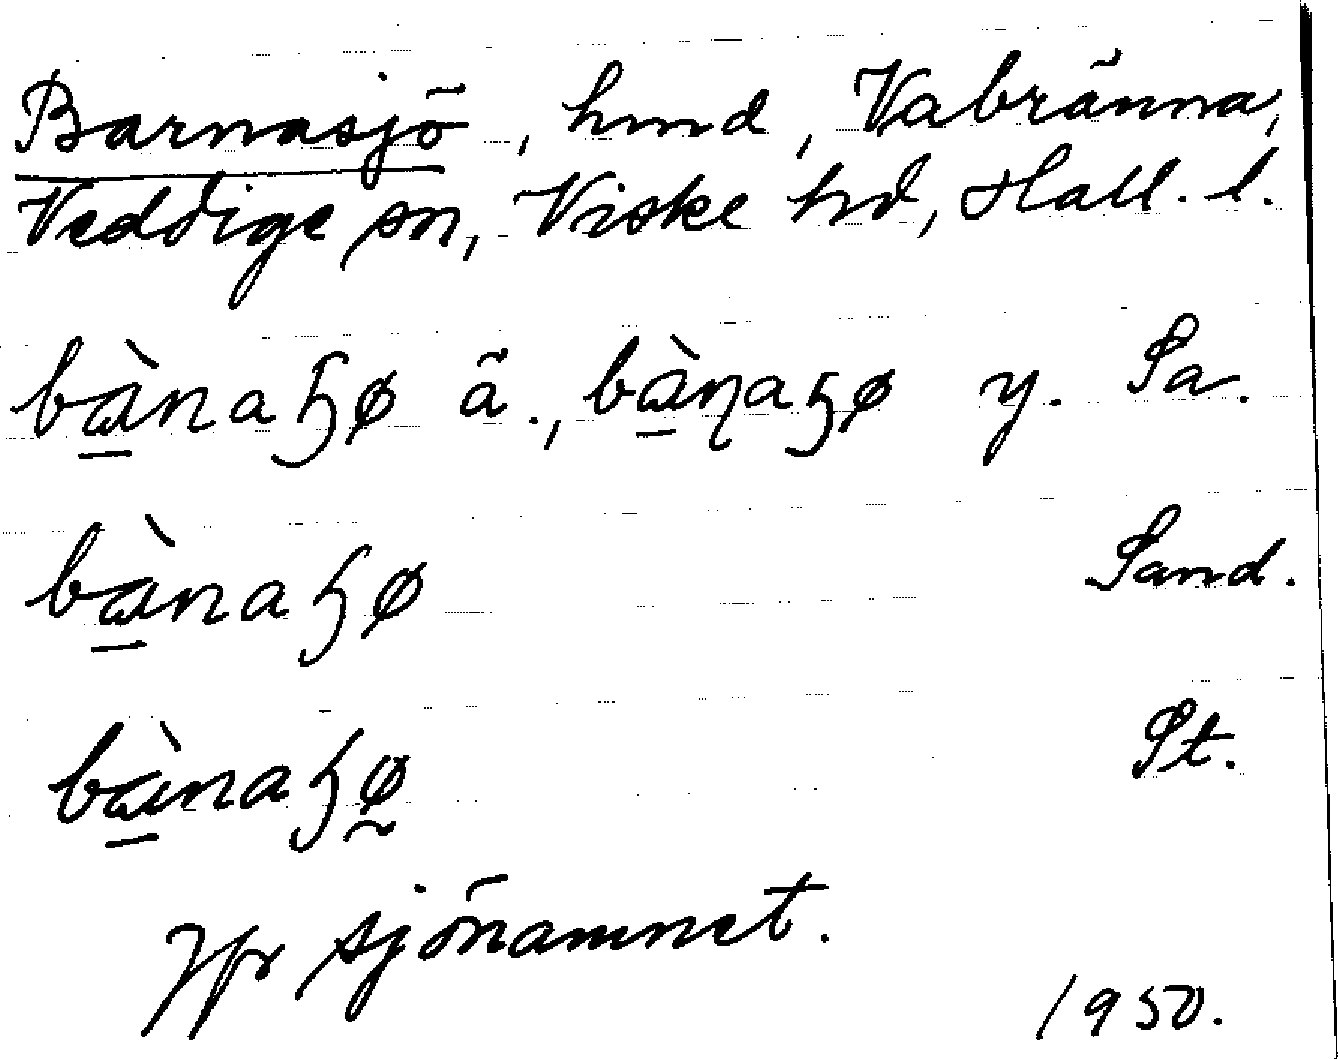 Barnasjö, hmd, Vabränna,
Veddige sn, Viske hd, Hall. l.
bà̱naɧø ä., bà̱ɳaɧø y. Sa.
bà̱naɧø Sand.
bà̱naɧø̰ St.
Jfr sjönamnet.
1950.